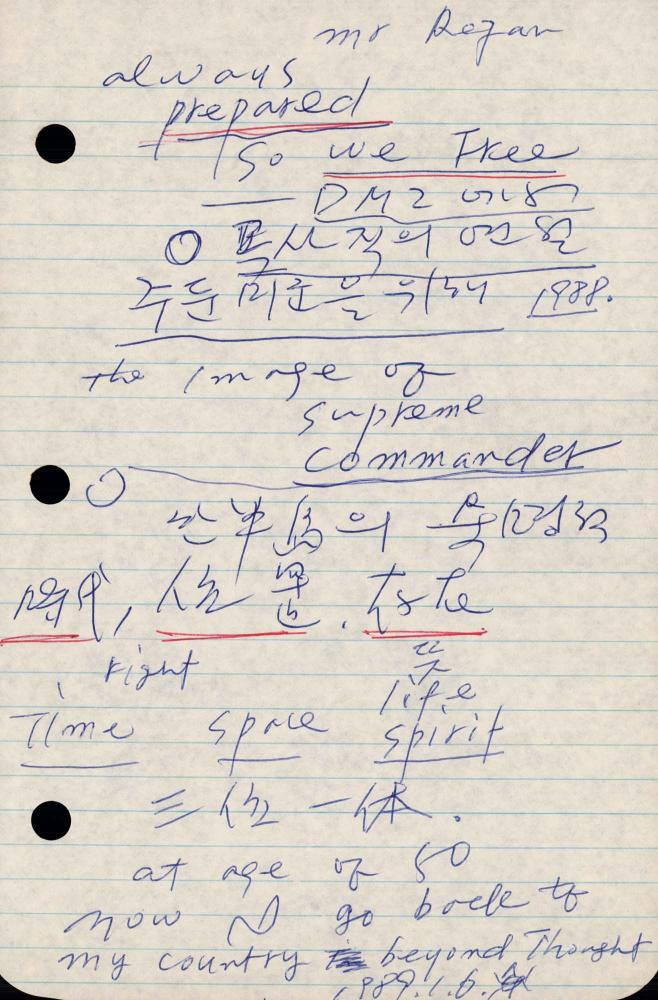 mr Regan
always
prepared
So we Free
DMZ 에서
특사적의 역할
주둔 미군을 위해 1988.
the image of
supreme
commander
한半島의 숙명적
時代, 位置.
right 뜻
life
Time space spirit
三位一体.
at age of 50
now I go back to
my country beyond Thought
1989.1.6.